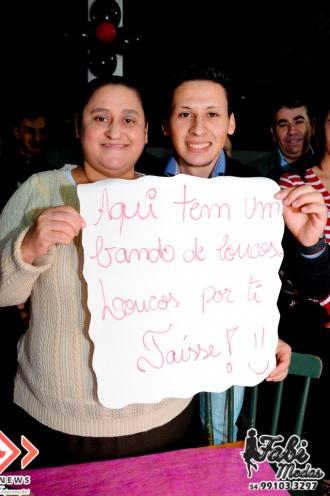 Aqui tem um
bando de loucos.
Loucos por ti
Taísse! !!
NEWS
Fabi
Modas
54 99103 3297